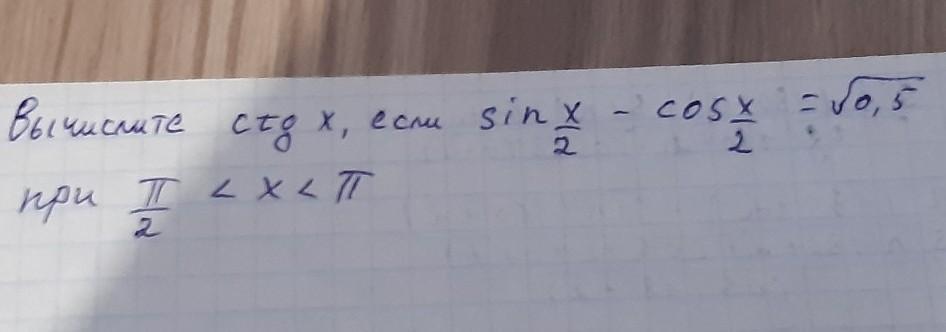 Вычислите ctg x, если sin x/2 - cos x/2 = √0,5
при π/2 < x < π